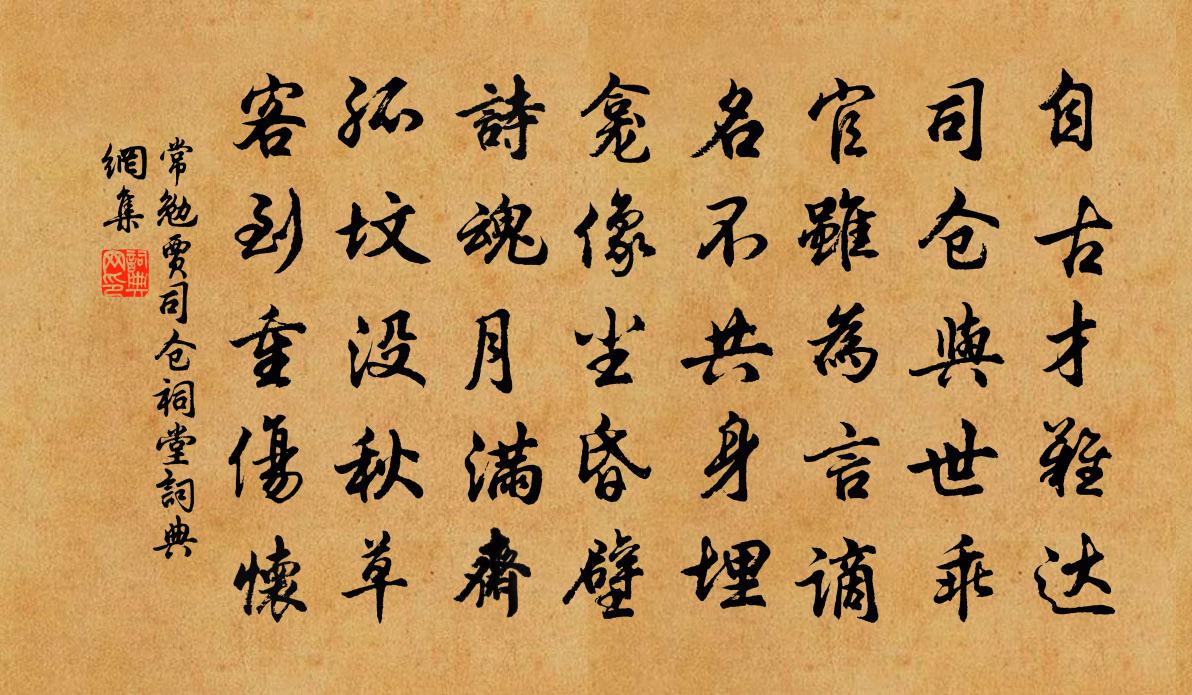 自古才难达
司仓與世乖
官雖為言謫
名不共身埋
龕像尘昏壁
詩魂月满齋
孤坟没秋草
客到重傷懷
常勉贾司仓祠堂詞典
網集
詞典网印